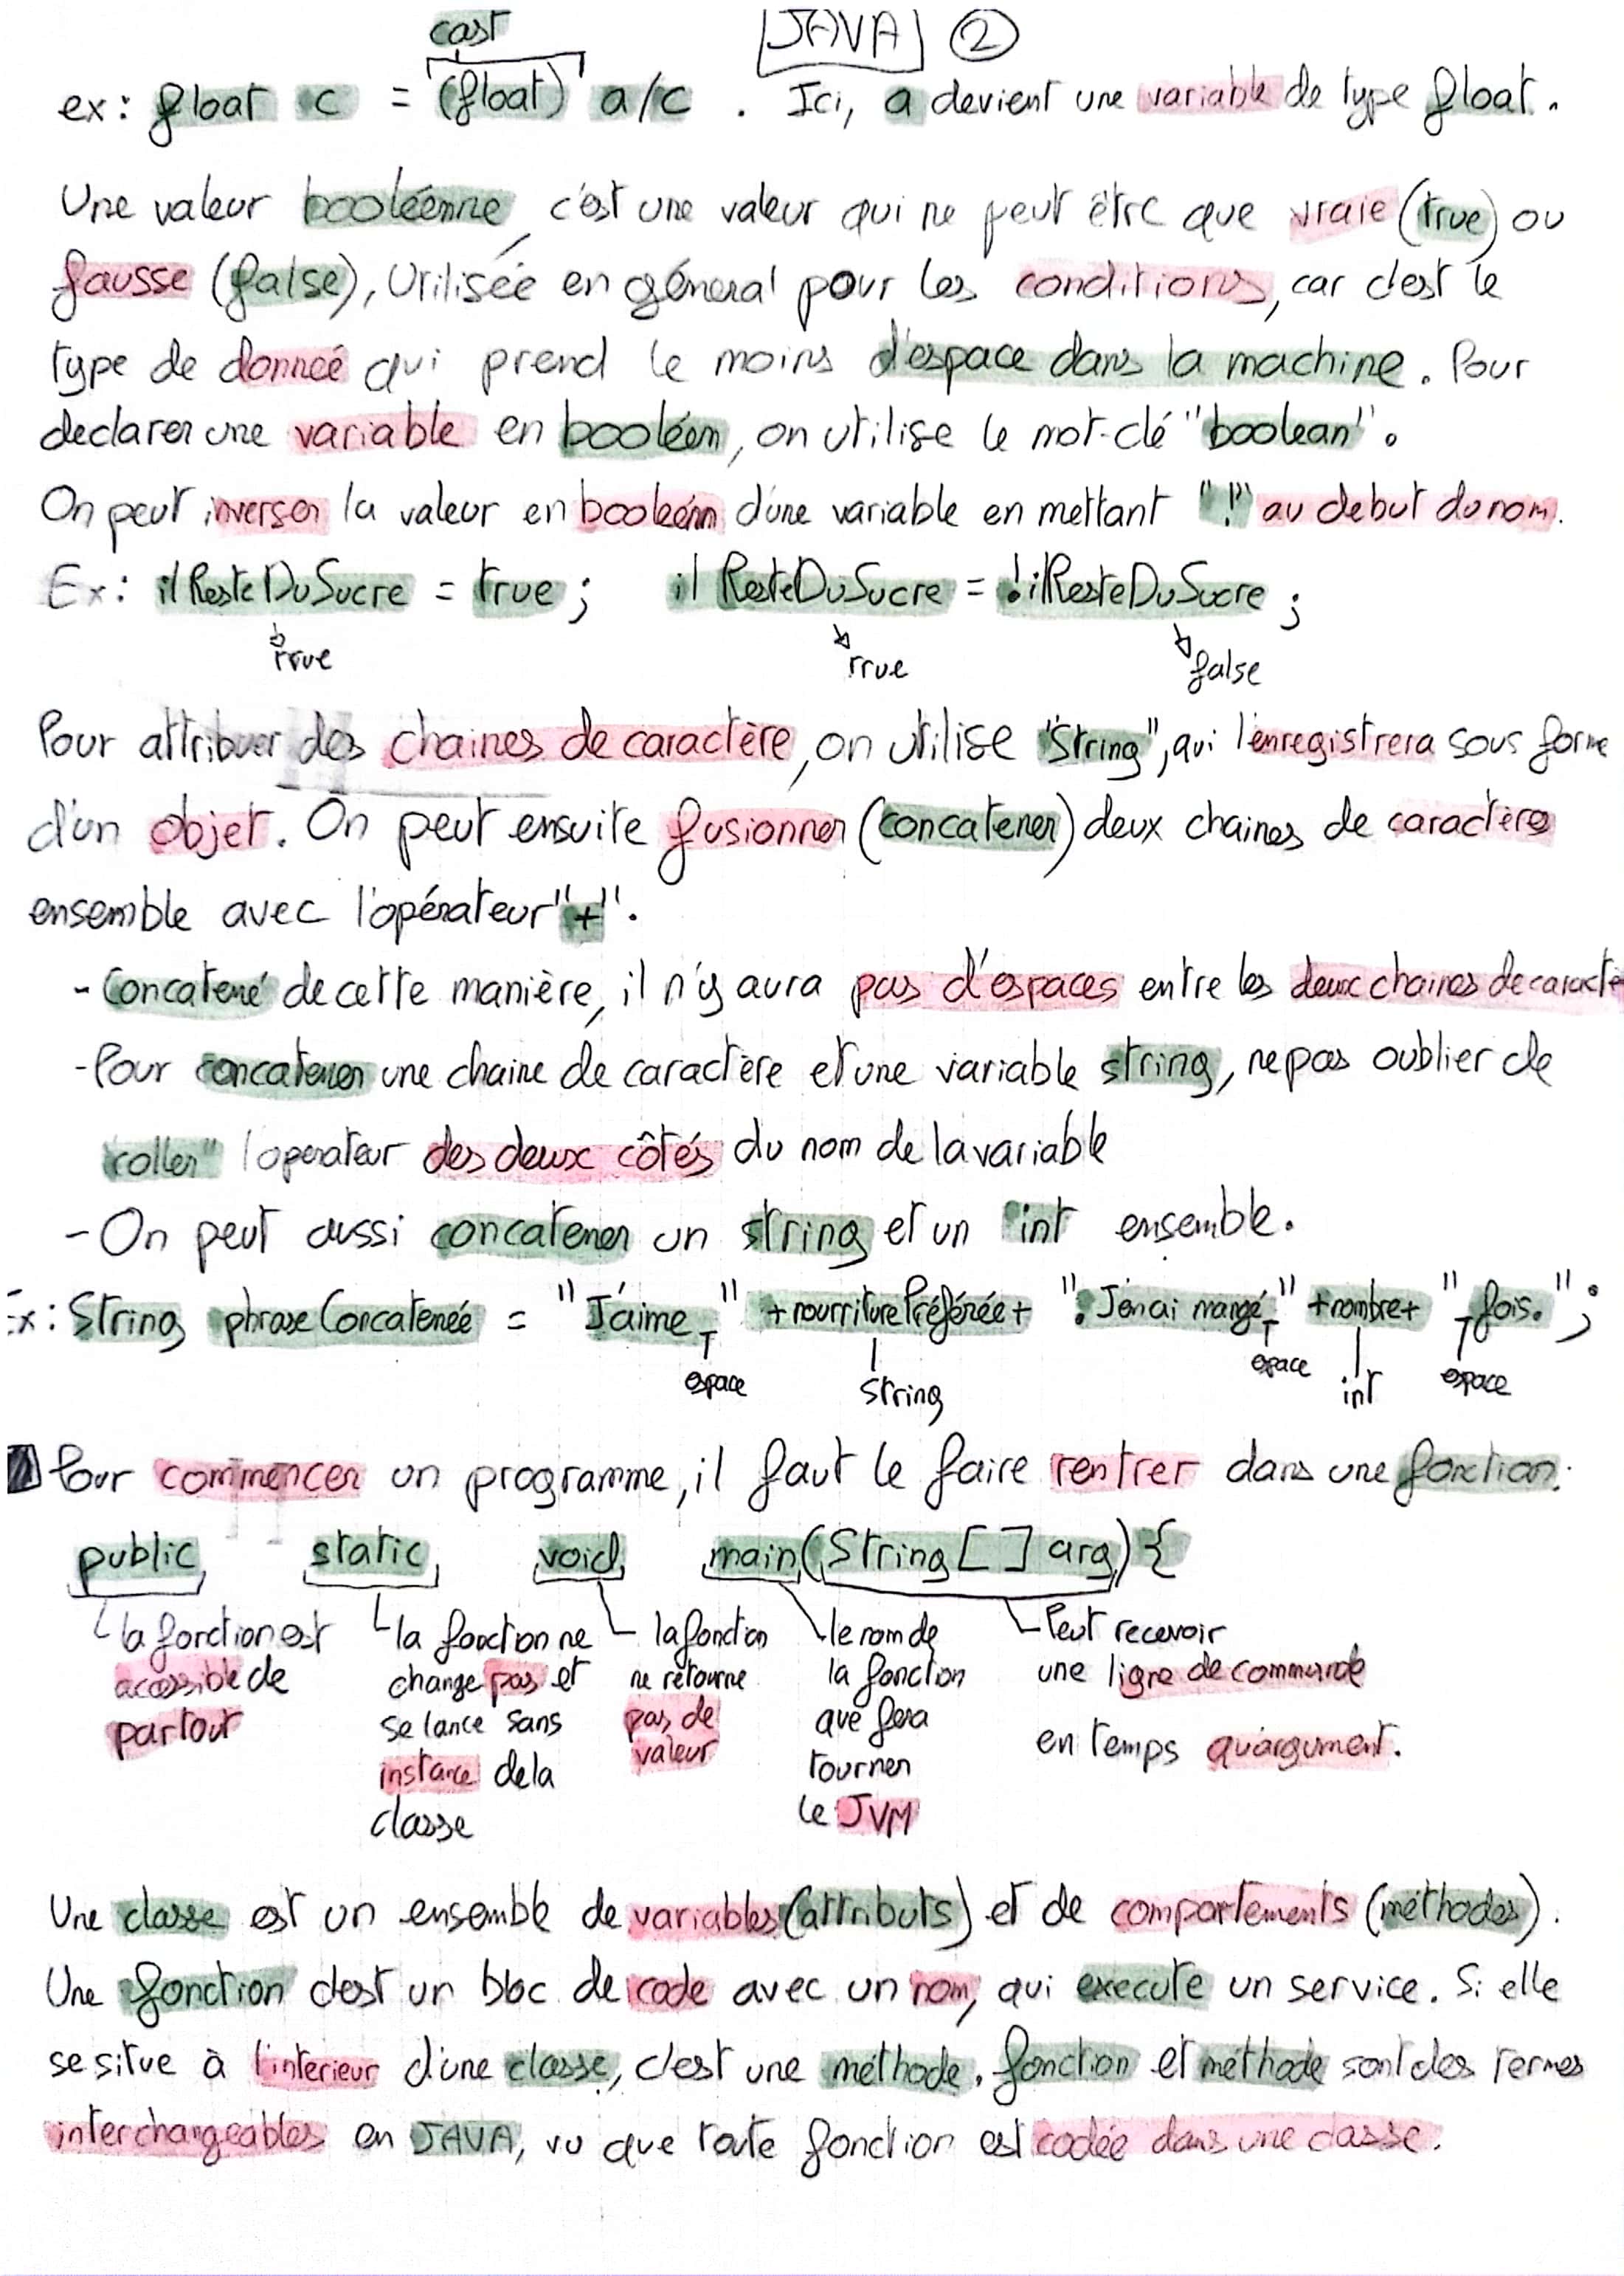 JAVA 2
cast
ex: float c = (float) a/c . Ici, a devient une variable de type float.
Une valeur booléenne, c'est une valeur qui ne peut être que vraie (true) ou
fausse (false), Utilisée en géneral pour les conditions, car c'est le
type de donneé qui prend le moins d'espace dans la machine. Pour
declarer une variable en booléen, on utilise le mot-clé "boolean".
On peut inverser la valeur en booleén d'une variable en mettant "!" au debut du nom.
Ex: ilResteDuSucre = true; ilResteDuSucre = !ilResteDuSucre;
true true false
Pour attribuer des chaines de caractère, on utilise "String", qui l'enregistrera sous forme
d'un objet. On peut ensuite fusionner (concatener) deux chaines de caractères
ensemble avec l'opérateur "+".
- Concatené de cette manière, il n'y aura pas d'espaces entre les deux chaines de caractè
- Pour concatener une chaine de caractère et une variable string, ne pas oublier de
"coller" l'operateur des deux côtés du nom de la variable
- On peut aussi concatener un string et un int ensemble.
Ex: String phraseConcatenée = "J'aime " +nourriturePréférée+ ". J'en ai mangé " +nombre+ " fois.";
espace string espace int espace
Pour commencer un programme, il faut le faire rentrer dans une fonction:
public static void main(String[] arg){
la fonction est la fonction ne la fonction le nom de Peut recevoir
acessible de change pas et ne retourne la fonction une ligne de commande
partout se lance sans pas de que fera en temps qu'argument.
instance de la valeur tourner
classe le JVM
Une classe est un ensemble de variables (attributs) et de comportements (méthodes).
Une fonction c'est un bloc de code avec un nom, qui execute un service. Si elle
se situe à l'interieur d'une classe, c'est une méthode. fonction et méthode sont des termes
interchangeables en JAVA, vu que toute fonction est codée dans une classe.